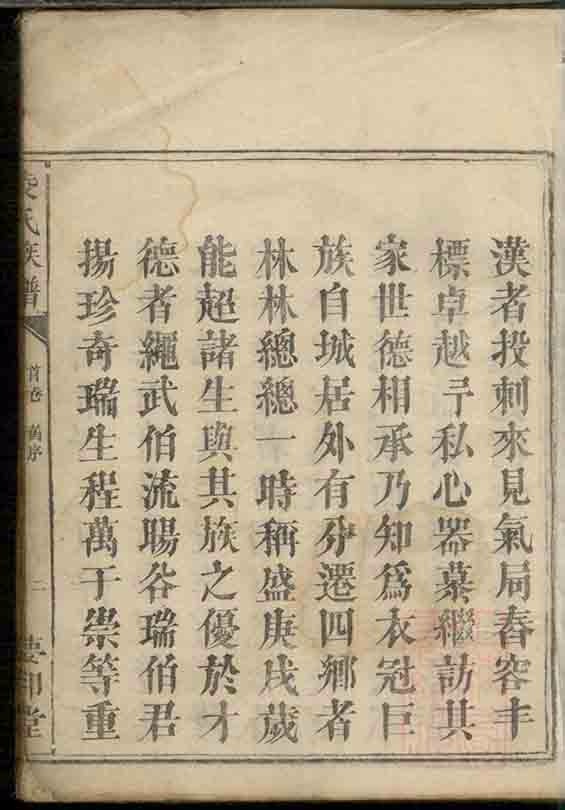 漢者投刺來見氣局舂容丰
標卓越予私心器慕繼訪其
家世德相承乃知爲衣冠巨
族自城居外有分遷四鄉者
林林總總一時稱盛庚戌歲
能超諸生與其族之優於才
德者繩武伯流暘谷瑞伯君
揚珍奇瑞生程萬于崇等重
氏族譜
首卷 舊序
二
堂